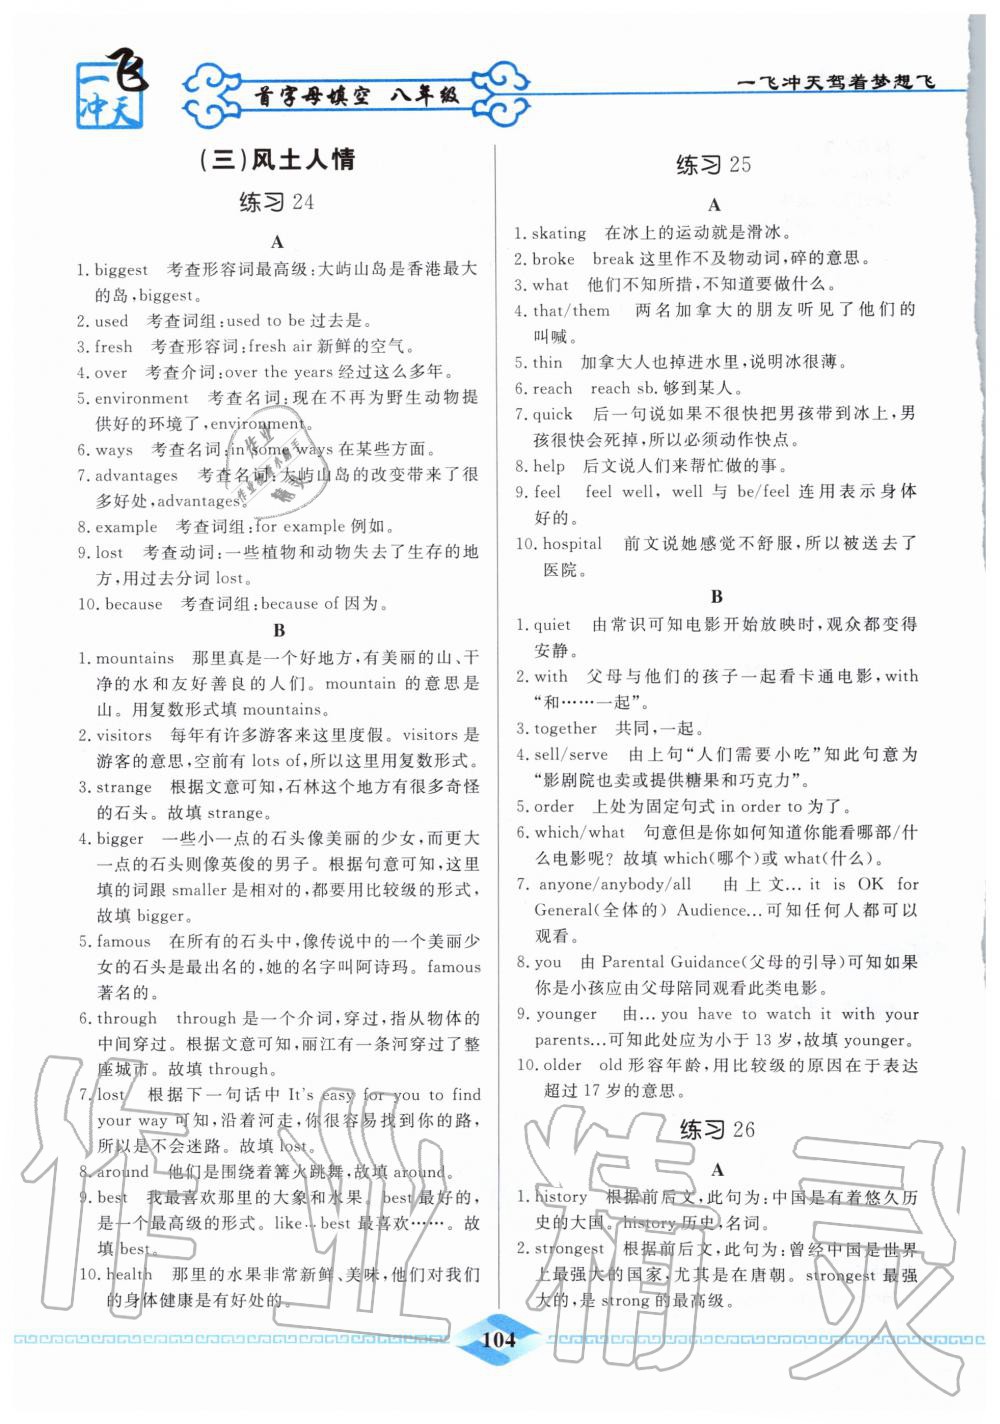 一飞冲天
首字母填空 八年级
一飞冲天驾着梦想飞
(三)风土人情
练习 24
A
1. biggest 考查形容词最高级:大屿山岛是香港最大
的岛,biggest。
2. used 考查词组:used to be 过去是。
3. fresh 考查形容词:fresh air 新鲜的空气。
4. over 考查介词:over the years 经过这么多年。
5. environment 考查名词:现在不再为野生动物提
供好的环境了,environment。
6. ways 考查名词:in some ways 在某些方面。
7. advantages 考查名词:大屿山岛的改变带来了很
多好处,advantages。
8. example 考查词组:for example 例如。
9. lost 考查动词:一些植物和动物失去了生存的地
方,用过去分词 lost。
10. because 考查词组:because of 因为。
B
1. mountains 那里真是一个好地方,有美丽的山、干
净的水和友好善良的人们。mountain 的意思是
山。用复数形式填 mountains。
2. visitors 每年有许多游客来这里度假。visitors 是
游客的意思,空前有 lots of,所以这里用复数形式。
3. strange 根据文意可知,石林这个地方有很多奇怪
的石头。故填 strange。
4. bigger 一些小一点的石头像美丽的少女,而更大
一点的石头则像英俊的男子。根据句意可知,这里
填的词跟 smaller 是相对的,都要用比较级的形式,
故填 bigger。
5. famous 在所有的石头中,像传说中的一个美丽少
女的石头是最出名的,她的名字叫阿诗玛。famous
著名的。
6. through through 是一个介词,穿过,指从物体的
中间穿过。根据文意可知,丽江有一条河穿过了整
座城市。故填 through。
7. lost 根据下一句话中 It's easy for you to find
your way 可知,沿着河走,你很容易找到你的路,
所以是不会迷路。故填 lost。
8. around 他们是围绕着篝火跳舞,故填 around。
9. best 我最喜欢那里的大象和水果。best 最好的,
是一个最高级的形式。like…best 最喜欢……。故
填 best。
10. health 那里的水果非常新鲜、美味,他们对我们
的身体健康是有好处的。
练习 25
A
1. skating 在冰上的运动就是滑冰。
2. broke break 这里作不及物动词,碎的意思。
3. what 他们不知所措,不知道要做什么。
4. that/them 两名加拿大的朋友听见了他们的
叫喊。
5. thin 加拿大人也掉进水里,说明冰很薄。
6. reach reach sb. 够到某人。
7. quick 后一句说如果不很快把男孩带到冰上,男
孩很快会死掉,所以必须动作快点。
8. help 后文说人们来帮忙做的事。
9. feel feel well, well 与 be/feel 连用表示身体
好的。
10. hospital 前文说她感觉不舒服,所以被送去了
医院。
B
1. quiet 由常识可知电影开始放映时,观众都变得
安静。
2. with 父母与他们的孩子一起看卡通电影,with
“和……一起”。
3. together 共同,一起。
4. sell/serve 由上句“人们需要小吃”知此句意为
“影剧院也卖或提供糖果和巧克力”。
5. order 上处为固定句式 in order to 为了。
6. which/what 句意但是你如何知道你能看哪部/什
么电影呢? 故填 which(哪个)或 what(什么)。
7. anyone/anybody/all 由上文…it is OK for
General(全体的) Audience…可知任何人都可以
观看。
8. you 由 Parental Guidance(父母的引导)可知如果
你是小孩应由父母陪同观看此类电影。
9. younger 由…you have to watch it with your
parents…可知此处应为小于 13 岁,故填 younger。
10. older old 形容年龄,用比较级的原因在于表达
超过 17 岁的意思。
练习 26
A
1. history 根据前后文,此句为:中国是有着悠久历
史的大国。history 历史,名词。
2. strongest 根据前后文,此句为:曾经中国是世界
上最强大的国家,尤其是在唐朝。strongest 最强
大的,是 strong 的最高级。
104
作业精灵